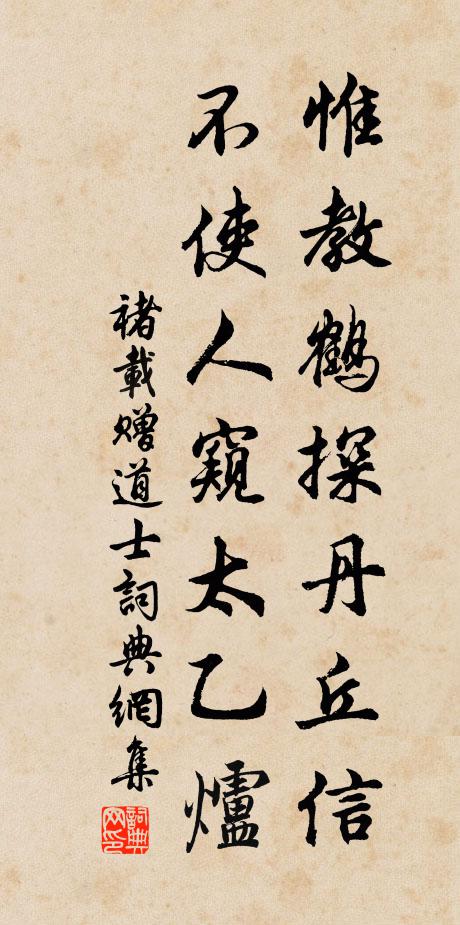 惟教鶴探丹丘信
不使人窺太乙爐
褚載贈道士詞典網集
詞典網印